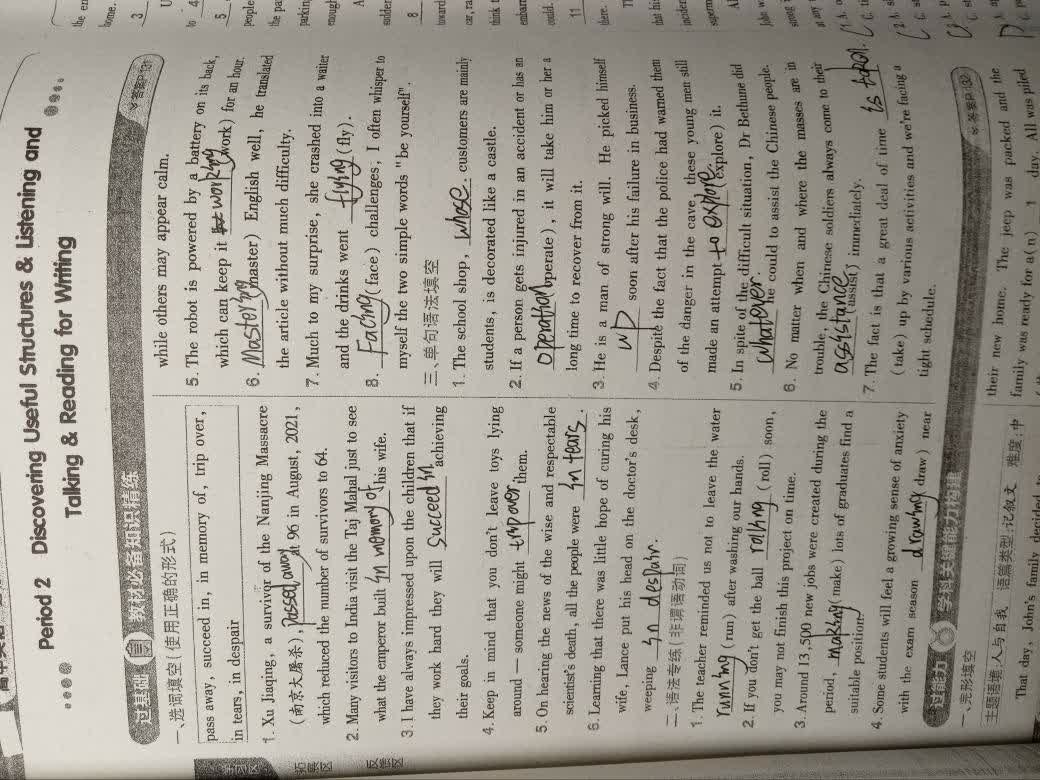 Period 2 Discovering Useful Structures & Listening and
Talking & Reading for Writing
过基础 教材必备知识精练
答案P131
一、选词填空(使用正确的形式)
pass away, succeed in, in memory of, trip over,
in tears, in despair
1. Xu Jiaqing, a survivor of the Nanjing Massacre
(南京大屠杀), passed away at 96 in August, 2021,
which reduced the number of survivors to 64.
2. Many visitors to India visit the Taj Mahal just to see
what the emperor built in memory of his wife.
3. I have always impressed upon the children that if
they work hard they will succeed in achieving
their goals.
4. Keep in mind that you don't leave toys lying
around — someone might trip over them.
5. On hearing the news of the wise and respectable
scientist's death, all the people were in tears.
6. Learning that there was little hope of curing his
wife, Lance put his head on the doctor's desk,
weeping in despair.
二、语法专练(非谓语动词)
1. The teacher reminded us not to leave the water
running (run) after washing our hands.
2. If you don't get the ball rolling (roll) soon,
you may not finish this project on time.
3. Around 13,500 new jobs were created during the
period, making (make) lots of graduates find a
suitable position.
4. Some students will feel a growing sense of anxiety
with the exam season drawing (draw) near
while others may appear calm.
5. The robot is powered by a battery on its back,
which can keep it working (work) for an hour.
6. Mastering (master) English well, he translated
the article without much difficulty.
7. Much to my surprise, she crashed into a waiter
and the drinks went flying (fly).
8. Facing (face) challenges, I often whisper to
myself the two simple words "be yourself".
三、单句语法填空
1. The school shop, whose customers are mainly
students, is decorated like a castle.
2. If a person gets injured in an accident or has an
operation (operate), it will take him or her a
long time to recover from it.
3. He is a man of strong will. He picked himself
up soon after his failure in business.
4. Despite the fact that the police had warned them
of the danger in the cave, these young men still
made an attempt to explore (explore) it.
5. In spite of the difficult situation, Dr Bethune did
whatever he could to assist the Chinese people.
6. No matter when and where the masses are in
trouble, the Chinese soldiers always come to their
assistance (assist) immediately.
7. The fact is that a great deal of time is taken
(take) up by various activities and we're facing a
tight schedule.
过能力 学科关键能力构建
答案P132
一、完形填空
主题语境:人与自我 语篇类型:记叙文 难度:中
That day, John's family decided to
their new home. The jeep was packed and the
family was ready for a(n) 1 day. All was piled